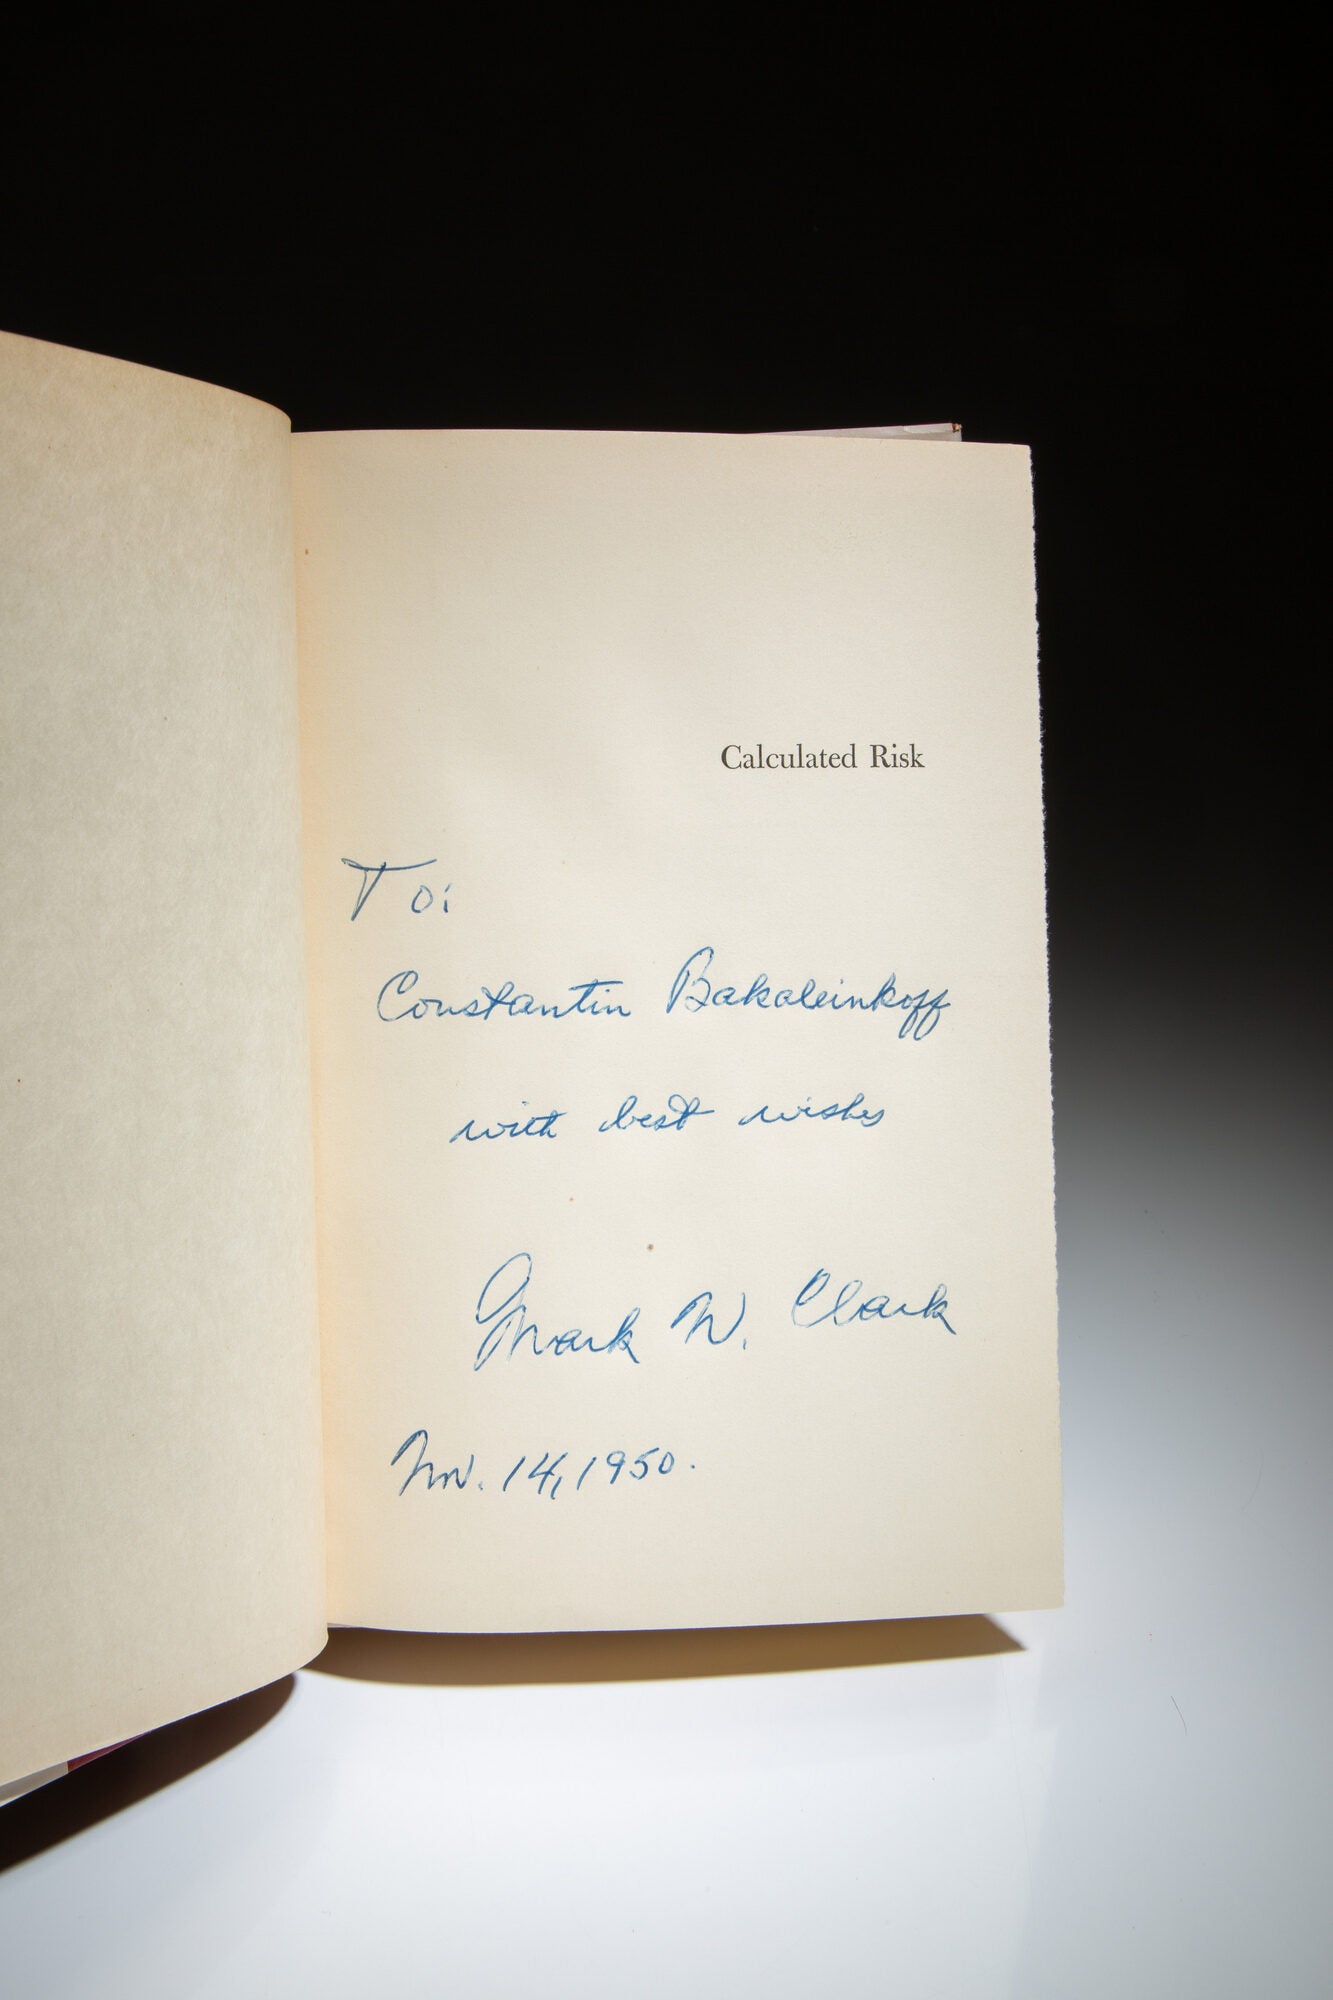 Calculated Risk
To:
Constantin Bakaleinkoff
with best wishes
Mark W. Clark
Nov. 14, 1950.